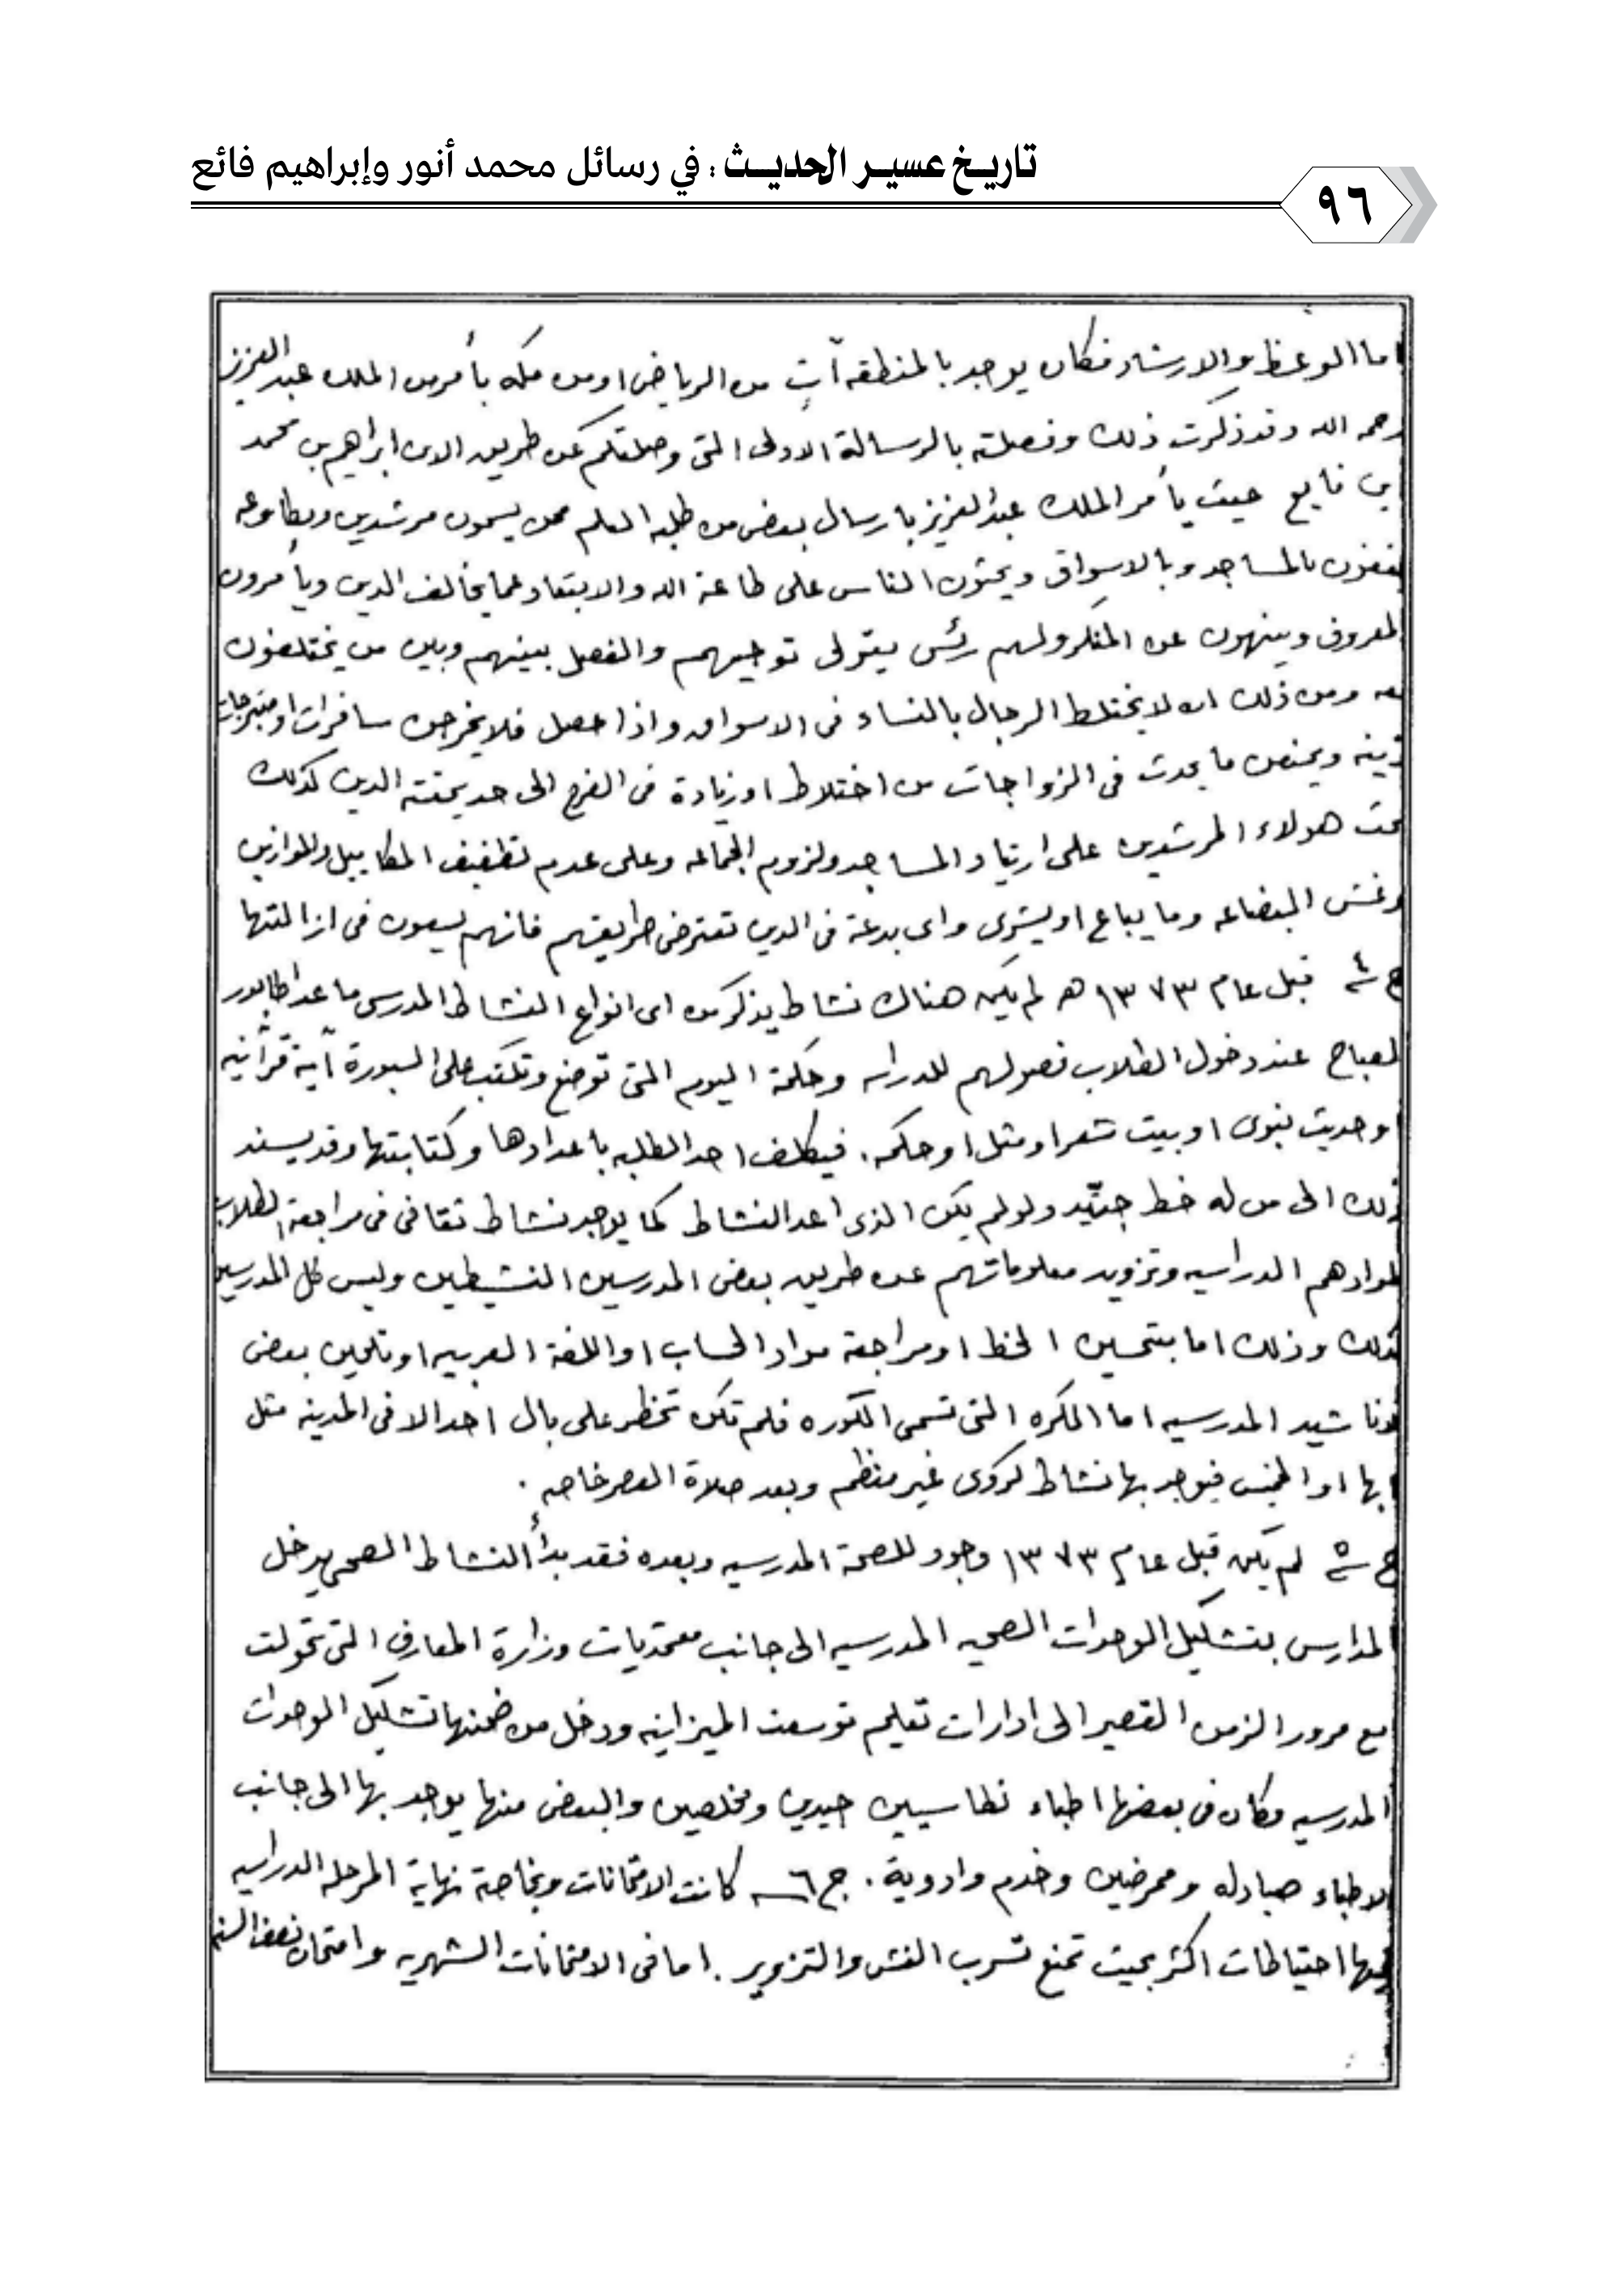 تاريخ عسير الحديث : في رسائل محمد أنور وإبراهيم فائع
٩٦
اما الوعظ والارشاد فكان يوجد بالمنطقه آتٍ من الرياض او من مكه بأمر من الملك عبدالعزيز
رحمه الله وقد ذكرت ذلك وفصلته بالرسالة الاولى التى وصلتكم عن طريق الابن ابراهيم بن محمد
بن فايع حيث يأمر الملك عبدالعزيز بارسال بعض من طلبه العلم ممن يسمون مرشدين ومطاوعه
يقفون بالمساجد وبالاسواق ويحثون الناس على طاعة الله والابتعاد عما يخالف الدين ويأمرون
بالمعروف وينهون عن المنكر ولهم رئس يتولى توجيههم والفصل بينهم وبين من يختلفون
معه ومن ذلك ان لا يختلط الرجال بالنساء فى الاسواق واذا حصل فلا يخرجن سافرات او متبرجات
بزينه ويمنعن ما يحدث فى الزواجات من اختلاط او زيادة فى الفرح الى حد يمقته الدين كذلك
يحث هولاء المرشدين على ارتياد المساجد ولزوم الجماعه وعلى عدم تطفيف المكاييل والموازين
وغش البضاعه وما يباع او يشترى واى بدعة فى الدين تعترض طريقهم فانهم يسعون فى ازالتها
ج٤ قبل عام ١٣٧٣ هـ لم يكن هناك نشاط يذكر من اى انواع النشاط المدرسى ما عدا طابور
الصباح عند دخول الطلاب فصولهم للدراسه وحكمة اليوم التى توضع وتكتب على السبورة آية قرآنيه
او حديث نبوى او بيت شعر او مثل او حكمه . فيكلف احد الطلبه باعدادها وكتابتها وقد يسند
ذلك الى من له خط جيّد ولو لم يكن الذى اعد النشاط كما يوجد نشاط ثقافى فى مراجعة الطلاب
لموادهم الدراسيه وتزويد معلوماتهم عن طريق بعض المدرسين النشيطين وليس كل المدرسين
كذلك وذلك اما بتحسين الخط او مراجعة مواد الحساب او اللغة العربيه او تلحين بعض
الاناشيد المدرسيه اما الكره التى تسمى الكوره فلم تكن تخطر على بال احد الا فى المدينه مثل
ابها او الخميس فيوجد بها نشاط كروى غير منظم وبعد صلاة العصر خاصه .
ج٥ لم يكن قبل عام ١٣٧٣ وجود للصحة المدرسيه وبعده فقد بدأ النشاط الصحى يدخل
المدارس بتشكيل الوحدات الصحيه المدرسيه الى جانب معتمديات وزارة المعارف التى تحولت
مع مرور الزمن القصير الى ادارات تعليم توسعت الميزانيه ودخل من ضمنها تشكيل الوحدات
المدرسيه وكان فى بعضها اطباء نطاسيين جيدين ومخلصين والبعض منها يوجد بها الى جانب
الاطباء صيادله وممرضين وخدم وادوية . ج٦ كانت الامتحانات وبخاصة نهاية المرحله الدراسيه
احتياطات اكثر بحيث تمنع تسرب الغش والتزوير . اما فى الامتحانات الشهريه وامتحان نصف السنه